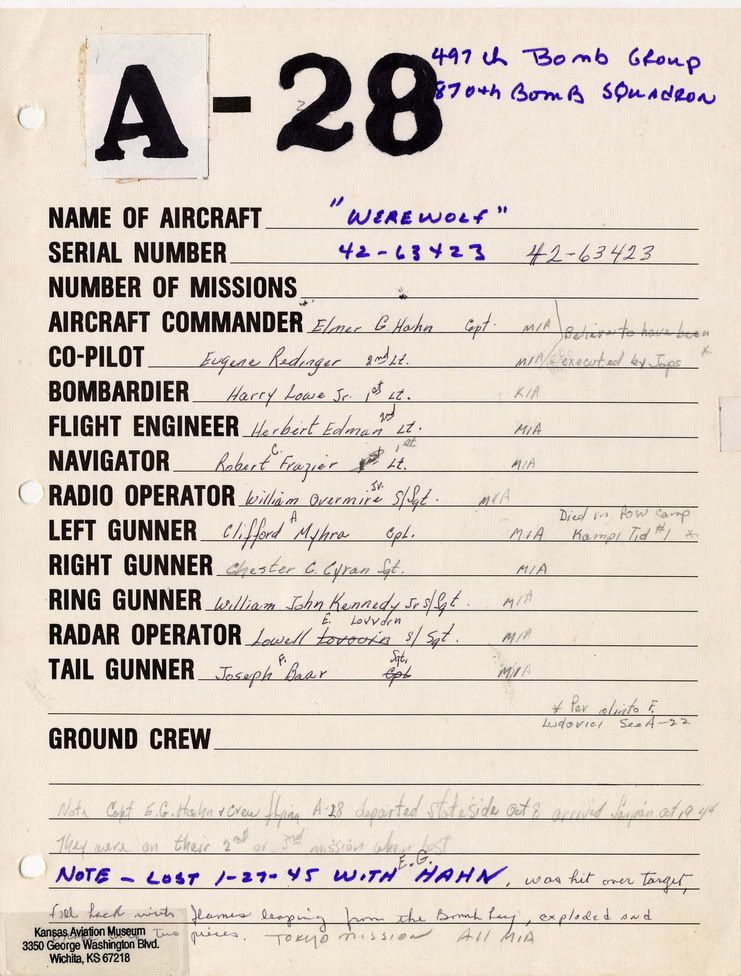 A-28
497th Bomb Group
870th Bomb Squadron
NAME OF AIRCRAFT "WEREWOLF"
SERIAL NUMBER 42-63423 42-63423
NUMBER OF MISSIONS
AIRCRAFT COMMANDER Elmer G. Hahn Capt. MIA Believe to have been
CO-PILOT Eugene Redinger 2nd Lt. MIA executed by Japs *
BOMBARDIER Harry Lowe Jr. 1st Lt. KIA
FLIGHT ENGINEER Herbert Edman 2nd Lt. MIA
NAVIGATOR Robert C. Frazier 1st Lt. MIA
RADIO OPERATOR William Overmire Jr. S/Sgt. MIA
Died in POW camp
LEFT GUNNER Clifford A Myhra Cpl. MIA Kampi Tid #1 *
RIGHT GUNNER Chester C. Cyran Sgt. MIA
RING GUNNER William John Kennedy Jr S/Sgt. MIA
RADAR OPERATOR Lowell E. Lovvorn S/Sgt. MIA
TAIL GUNNER Joseph F. Baar Sgt. Cpl MIA
* Per Olinto F.
Ludovici See A-22
GROUND CREW
Note Capt E.G. Hahn & Crew flying A-28 departed Stateside Oct 8 arrived Saipan Oct 1944
They were on their 2nd or 3rd mission when lost
NOTE - LOST 1-27-45 WITH E.G. HAHN, was hit over target,
fell back with flames leaping from the Bomb bay, exploded and
two pieces. TOKYO MISSION All MIA
Kansas Aviation Museum
3350 George Washington Blvd.
Wichita, KS 67218